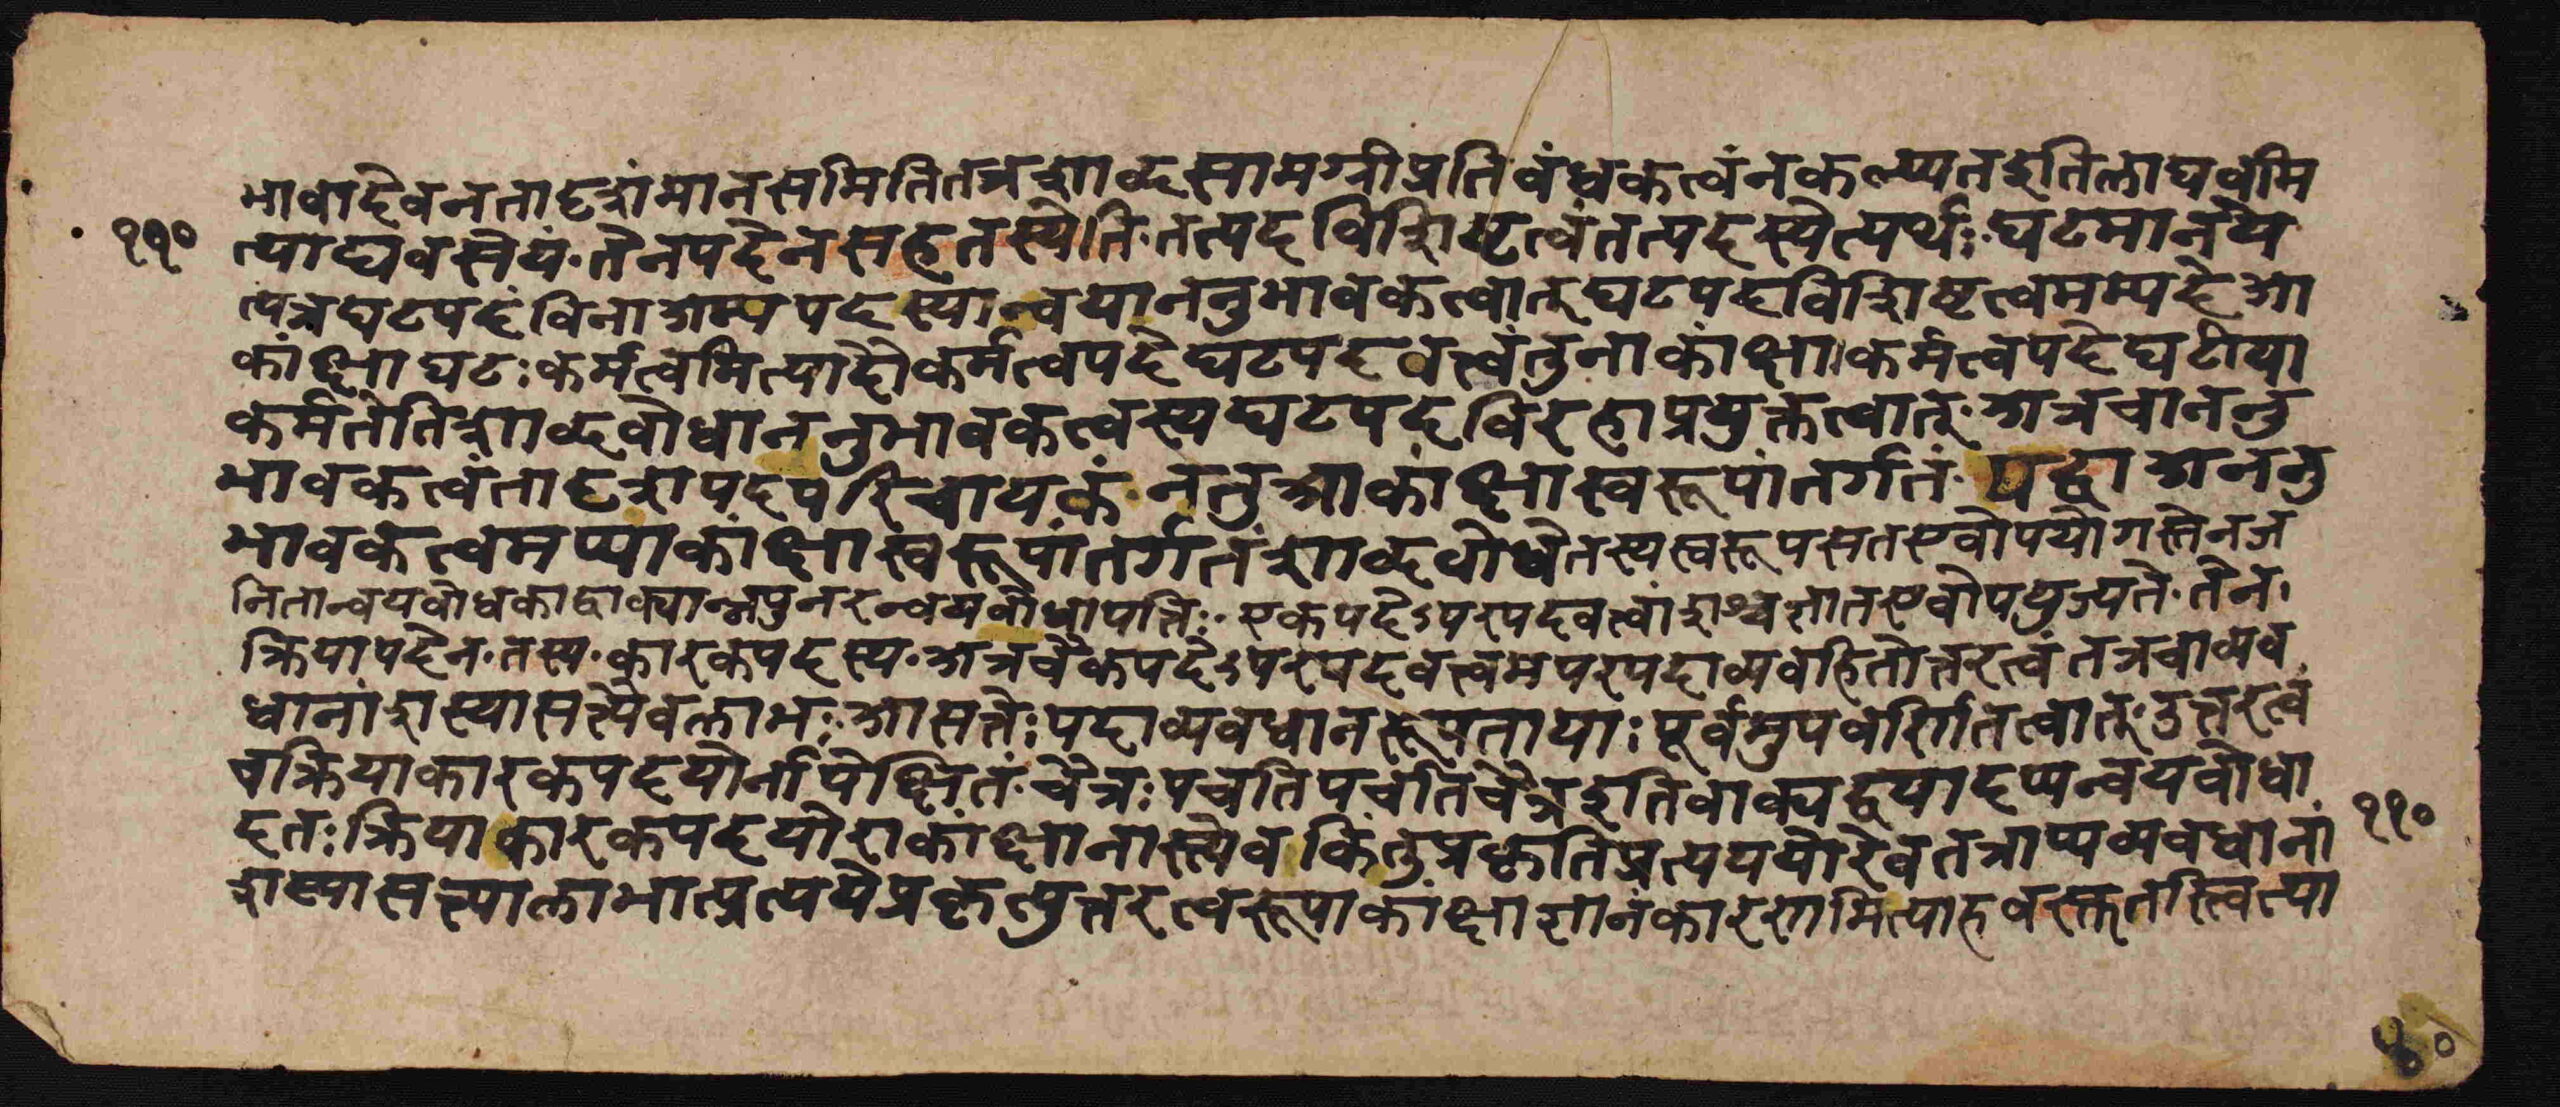 भावादेवनतादृशंमानसमितितत्रशाब्दसामग्रीप्रतिबंधकत्वंनकल्प्यतइतिलाघवमि
११०
त्याद्यवसेयं॰तेनपदेनसहतस्येति॰तत्पदविशिष्टत्वंतत्पदस्येत्यर्थः॰घटमानये
त्यत्रघटपदंविनाअम्पपदस्यान्वयाननुभावकत्वात्घटपदविशिष्टत्वमम्पदेआ
कांक्षाघटःकर्मत्वमित्यादौकर्मत्वपदेघटपदवत्त्वंतुनाकांक्षा।कर्मत्वपदेघटीया
कर्मतेतिशाब्दबोधाननुभावकत्वस्यघटपदविरहाप्रयुक्तत्वात्॰अत्रचाननु
भावकत्वंतादृशपदपरिचायकं॰नतुआकांक्षास्वरूपांतर्गतं॰यद्वाअननु
भावकत्वमप्याकांक्षास्वरूपांतर्गतंशाब्दबोधेतस्यस्वरूपसतएवोपयोगस्तेनज
नितान्वयबोधकाद्वाक्यान्नपुनरन्वयबोधापत्तिः॰एकपदेऽपरपदवत्त्वांशश्चज्ञातएवोपयुज्यते॰तेन॰
क्रियापदेन॰तस्य॰कारकपदस्य॰अत्रचैकपदेऽपरपदवत्त्वमपरपदाव्यवहितोत्तरत्वंतत्रचाव्यव
धानांशस्यासत्त्यैवलाभः॰आसत्तेःपदाव्यवधानरूपतायाःपूर्वमुपवर्णितत्वात्॰उत्तरत्वं
चक्रियाकारकपदयोर्नापेक्षितं॰चैत्रःपचतिपचतिचैत्रइतिवाक्यद्वयादप्यन्वयबोधा
दतःक्रियाकारकपदयोराकांक्षानास्त्येवकिंतुप्रकृतिप्रत्यययोरेवतत्राप्यव्यवधानां
११०
शस्यासत्त्यालाभात्प्रत्ययेप्रकृत्युत्तरत्वरूपाकांक्षाज्ञानंकारणमित्याहवस्तुतस्त्वित्या